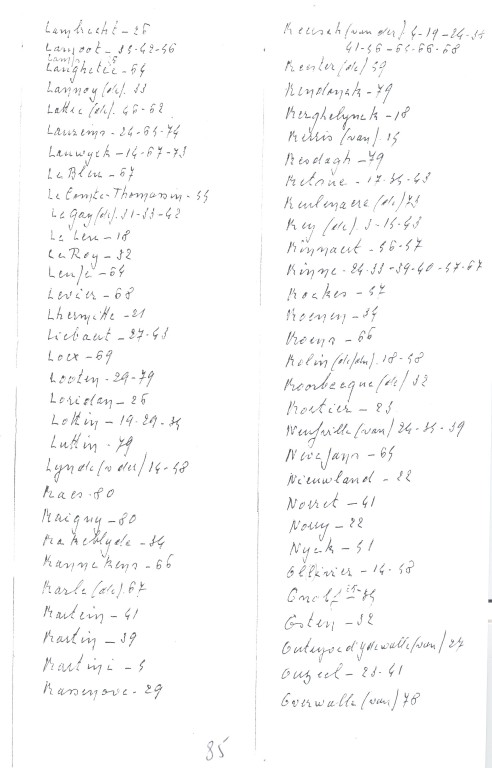 Lambrecht - 26
Lamoot - 33-42-56
Langhetee - 64
Lannoy (de). 33
Lattre (de). 46-62
Laureins - 24-64-74
Lauwyck - 14-67-73
Le Bleu - 67
Le Comte-Thomassin - 54
Le Gay (de). 31-33-42
Le Leu - 18
Le Roy - 32
Leuse - 64
Levier - 68
Lhermitte - 21
Liebaert - 27-43
Loex - 69
Looten - 29-79
Loridan - 26
Lottin - 19-29-34
Luttin - 79
Lynde (v der) 14-48
Maes - 80
Maigny - 80
Makeblyde - 34
Mannekens - 66
Marle (de). 67
Martein - 41
Martin - 39
Martini - 5
Massenove - 29
Meersch (van der). 4-19-24-34
41-56-64-66-68
Meester (de) 59
Mendonck - 79
Merghelynck - 18
Merris (van). 14
Mesdagh - 79
Metsue - 17-34-43
Meulenaere (de) 73
Mey (de). 3-14-43
Minnaert - 56-57
Minne - 24-33-39-40-57-67
Moakes - 57
Moenen - 34
Moens - 66
Molin (de/du). 18-48
Moorbecque (de) 32
Mortier - 23
Neufville (van) 24-34-39
Nevejans - 64
Nieuwland - 22
Norret - 41
Nouy - 22
Nyck - 51
Ollivier - 14-48
Onolf - 34
Osten - 32
Outryve d'ydewalle (van) 27
Ouzeel - 23-41
Overwalle (van) 78
85